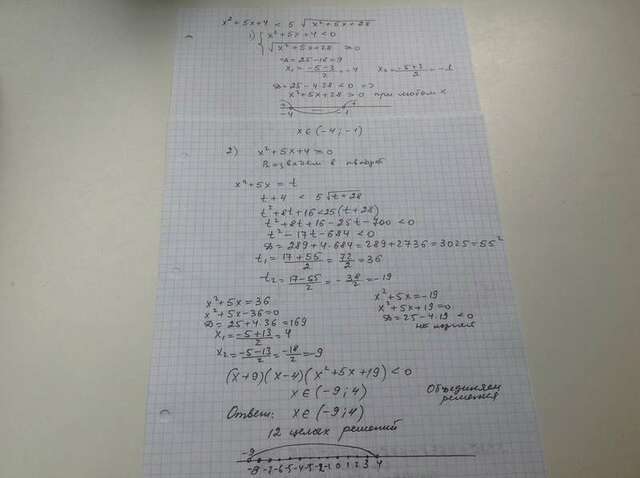 x² + 5x + 4 < 5 √(x² + 5x + 28)
1) { x² + 5x + 4 < 0
√(x² + 5x + 28) ≥ 0
D = 25 - 16 = 9
x₁ = (-5-3)/2 = -4 x₂ = (-5+3)/2 = -1
D = 25 - 4·28 < 0 =>
x² + 5x + 28 > 0 при любом x
-4 -1
x ∈ (-4; -1)
2) x² + 5x + 4 ≥ 0
Возведем в квадрат
x² + 5x = t
t + 4 < 5 √(t + 28)
t² + 8t + 16 < 25(t + 28)
t² + 8t + 16 - 25t - 700 < 0
t² - 17t - 684 < 0
D = 289 + 4·684 = 289 + 2736 = 3025 = 55²
t₁ = (17+55)/2 = 72/2 = 36
t₂ = (17-55)/2 = -38/2 = -19
x² + 5x = 36
x² + 5x - 36 = 0
D = 25 + 4·36 = 169
x₁ = (-5+13)/2 = 4
x₂ = (-5-13)/2 = -18/2 = -9
x² + 5x = -19
x² + 5x + 19 = 0
D = 25 - 4·19 < 0
нет корней
(x+9)(x-4)(x² + 5x + 19) < 0
x ∈ (-9; 4)
Объединяем
решения
Ответ: x ∈ (-9; 4)
12 целых решений
-9 -8 -7 -6 -5 -4 -3 -2 -1 0 1 2 3 4